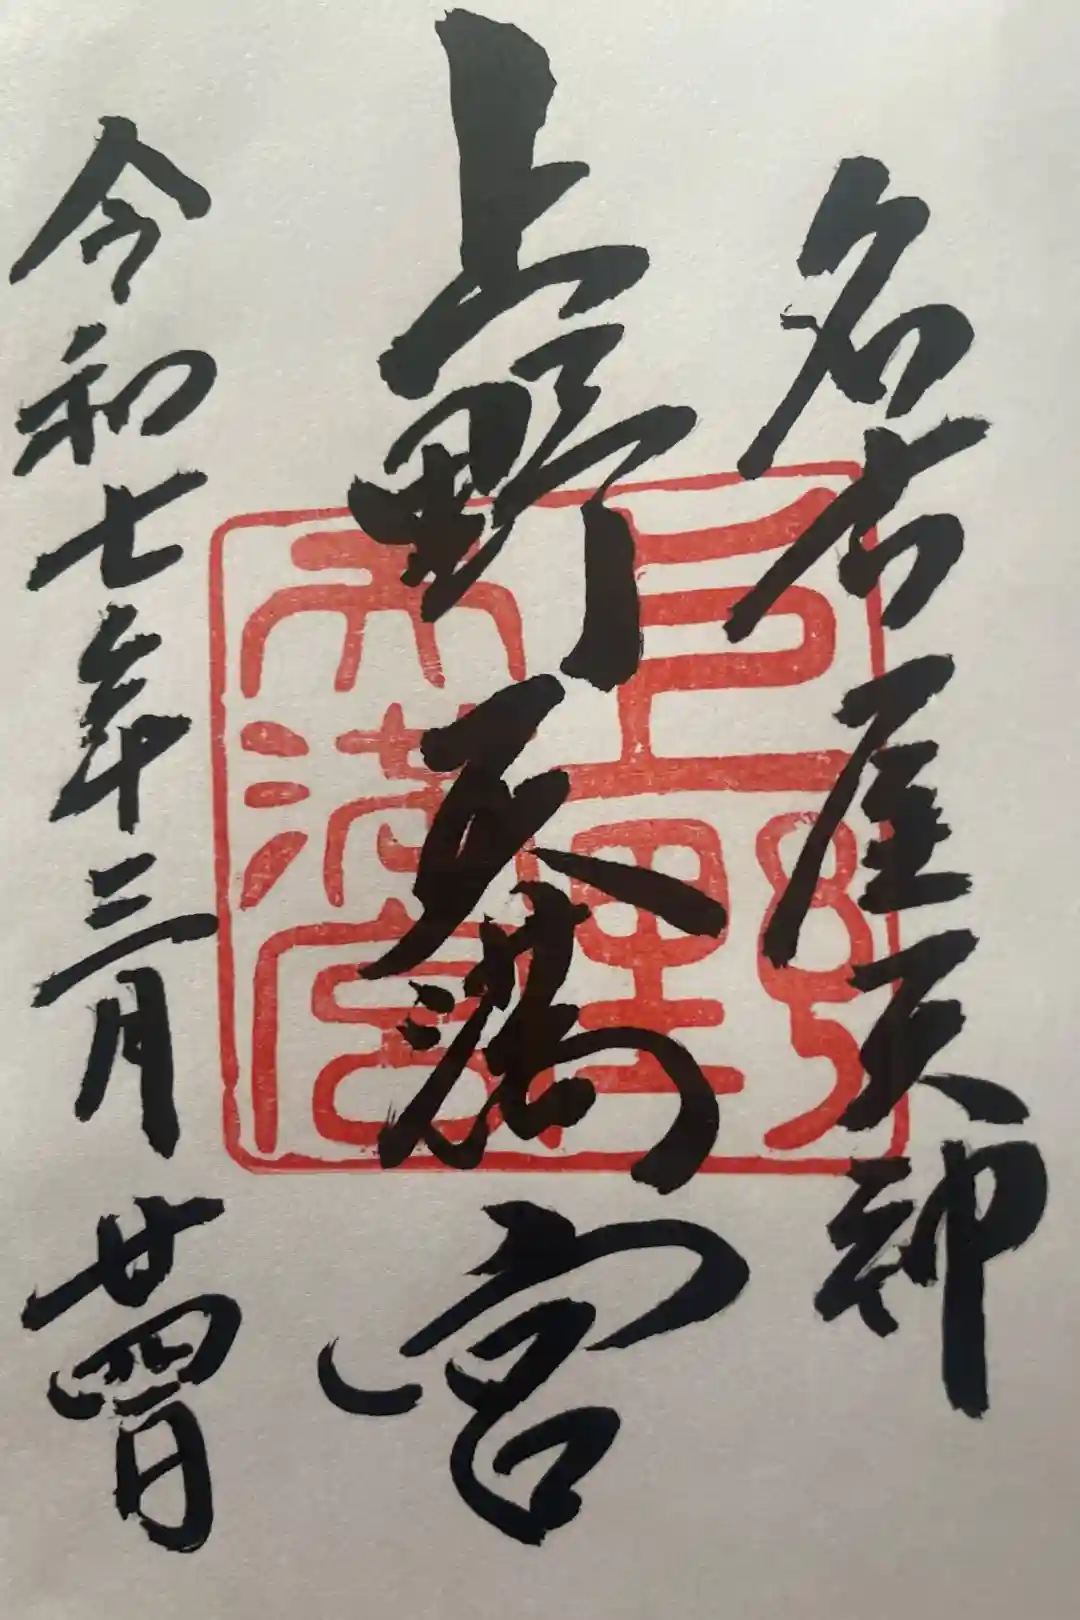 名古屋天神
上野天満宮
令和七年三月廿四日
上野
天満宮